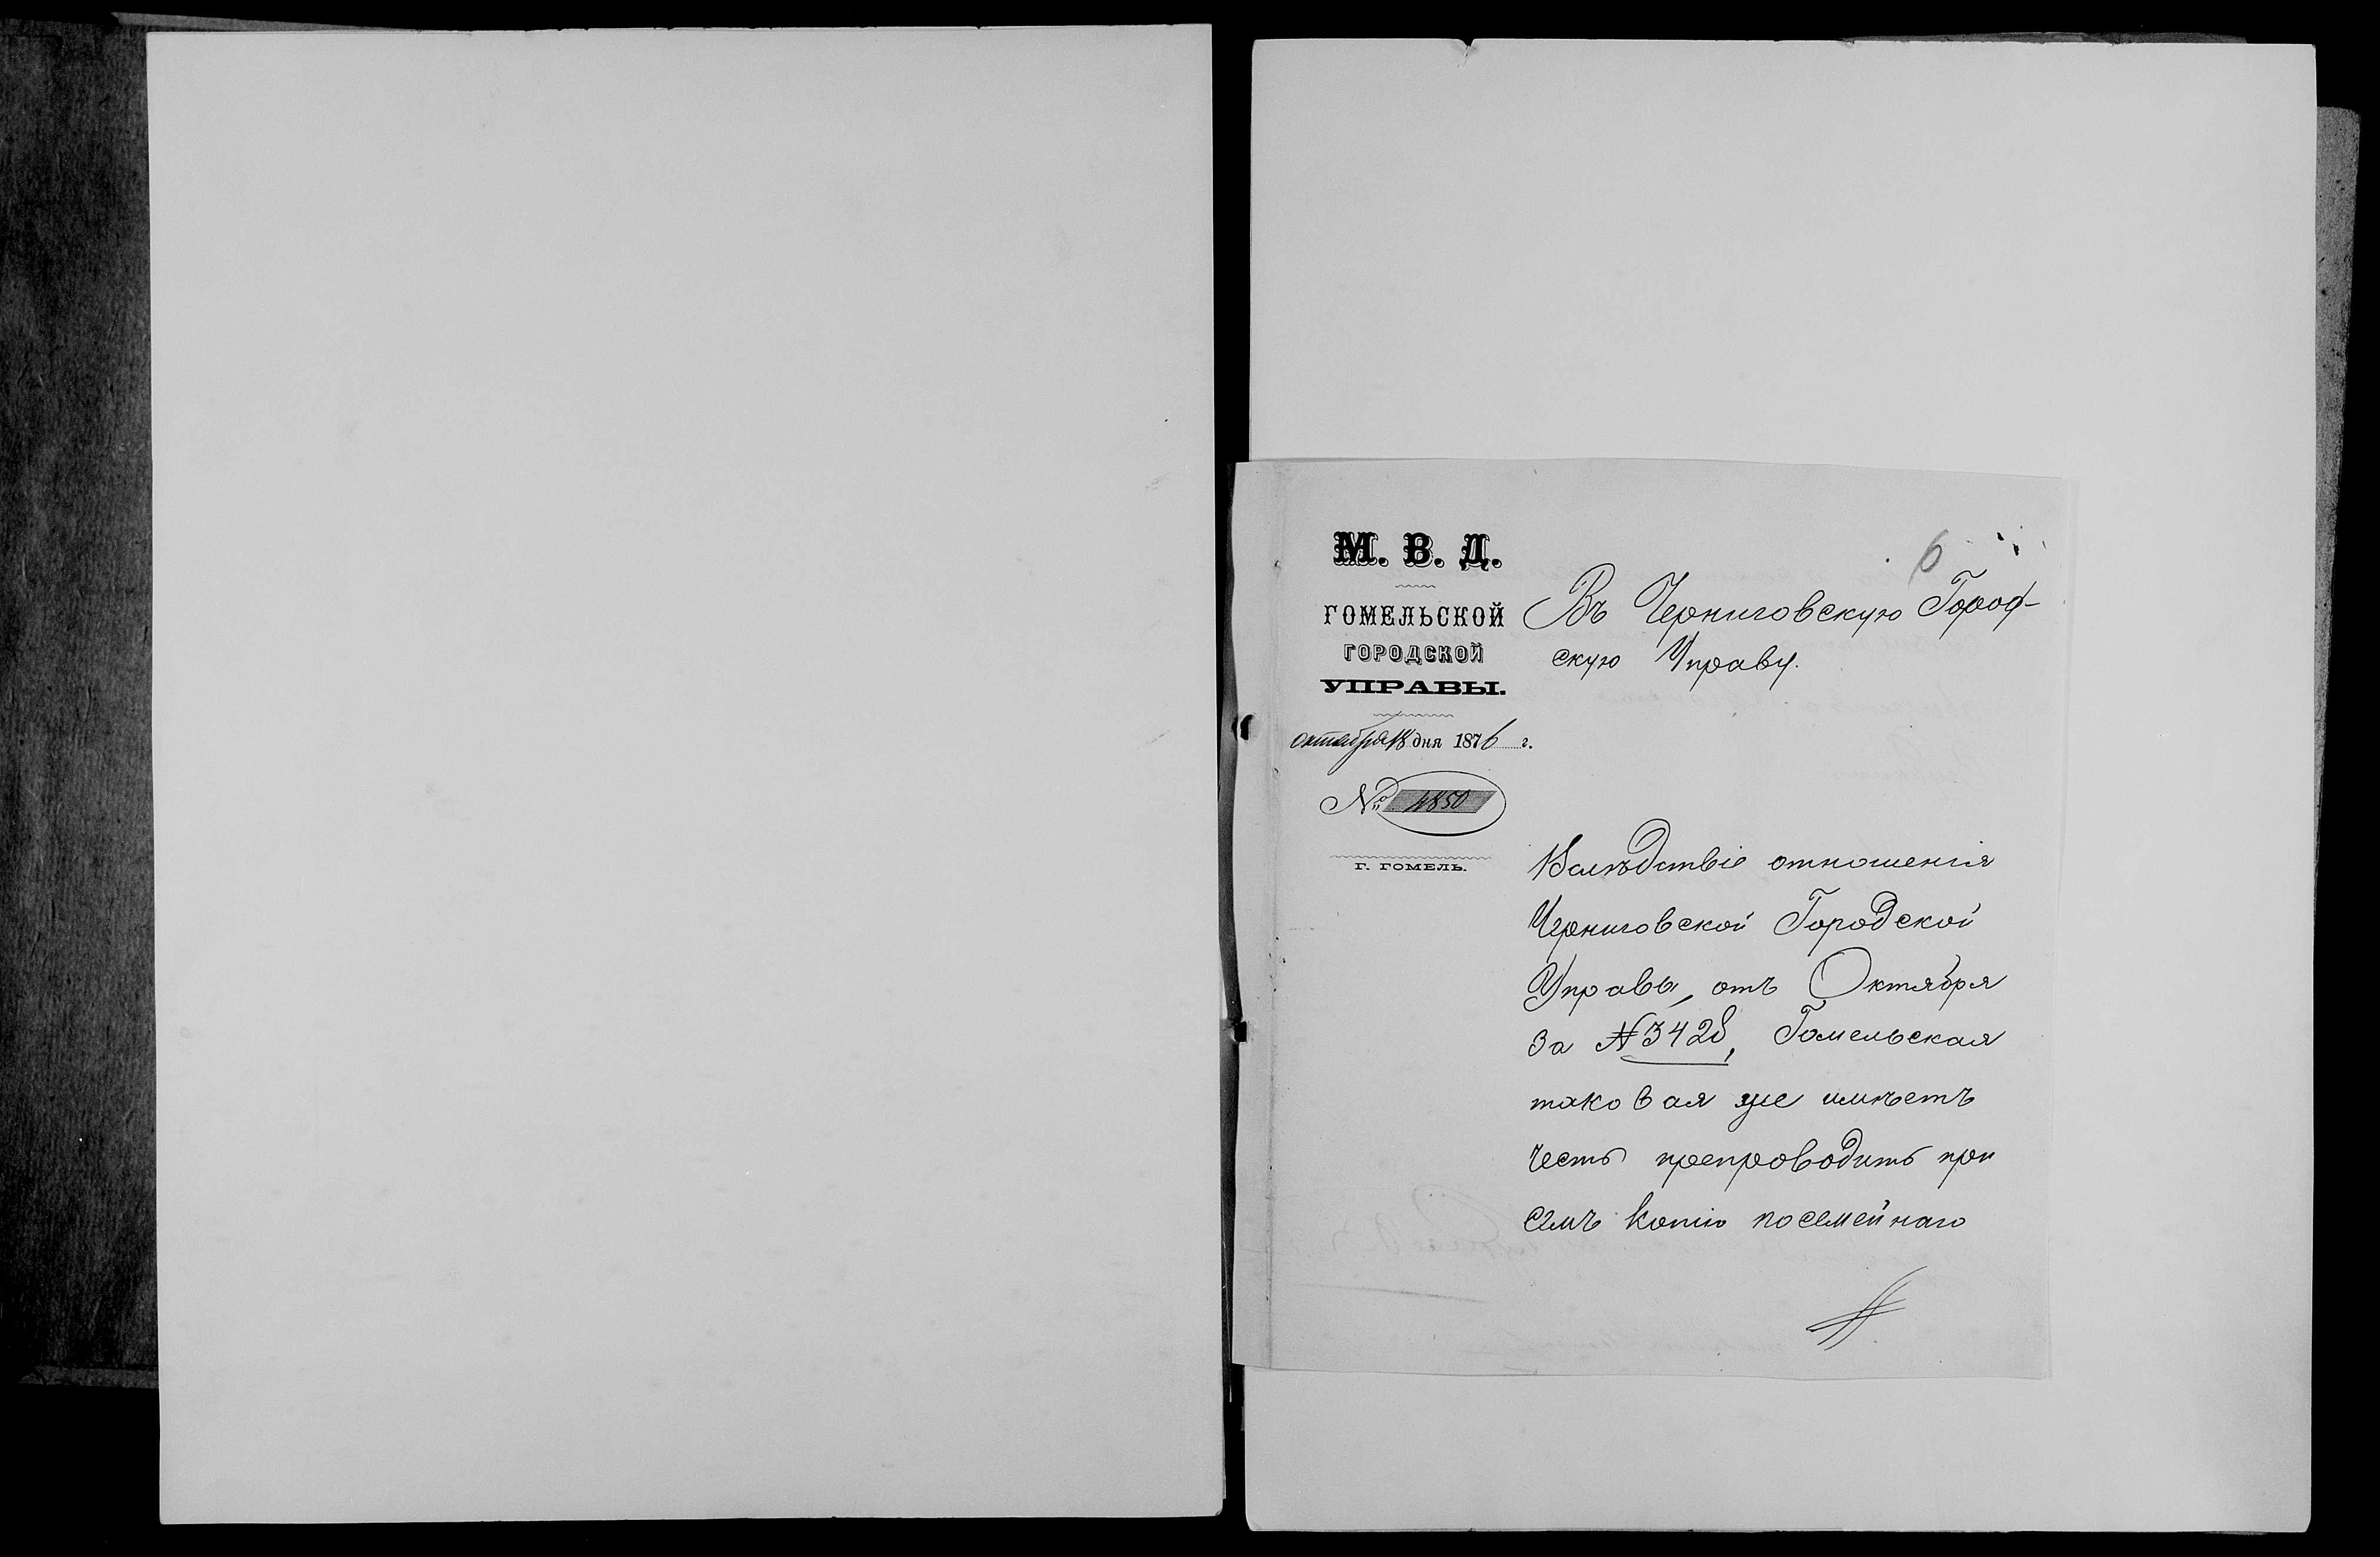 6
М. В. Д.
ГОМЕЛЬСКОЙ
ГОРОДСКОЙ
УПРАВЫ.
октября 18 дня 1876 г.
№ 4850
Г. ГОМЕЛЬ.
Въ Черниговскую Город-
скую Управу.
Вслѣдствіе отношенія
Черниговской Городской
Управы, отъ Октября
за № 3428, Гомельская
таковая же имѣетъ
честь препроводить при
семъ копію посемейнаго